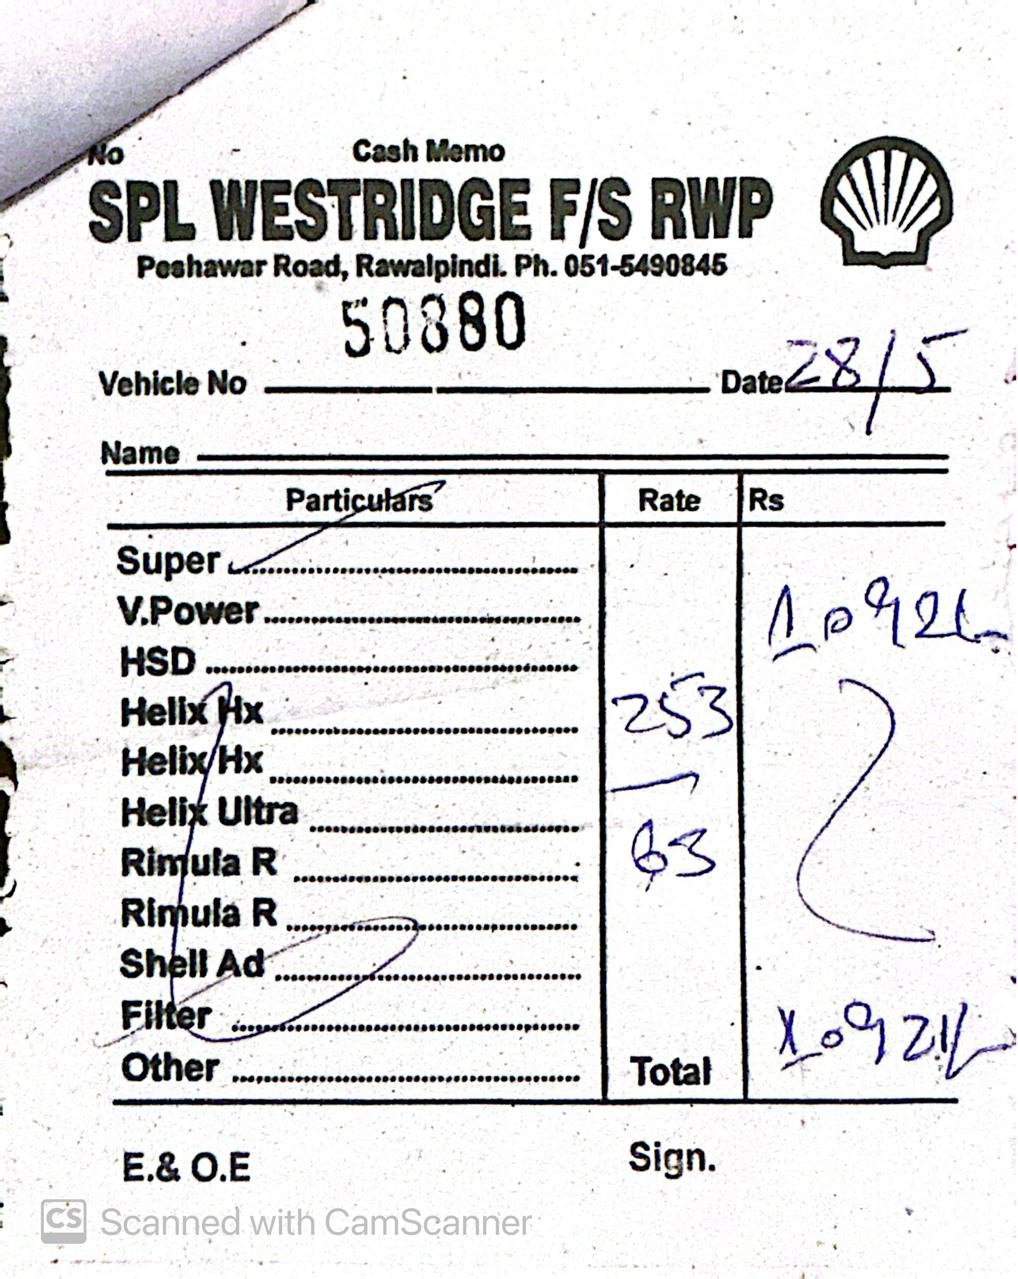 No Cash Memo
SPL WESTRIDGE F/S RWP
Peshawar Road, Rawalpindi. Ph. 051-5490845
50880
Vehicle No Date 28/5
Name
Particulars Rate Rs
Super
V.Power
HSD
Helix Hx 253
Helix Hx
Helix Ultra
Rimula R 63
Rimula R
Shell Ad
Filter
Other Total
E.& O.E Sign.
CS Scanned with CamScanner